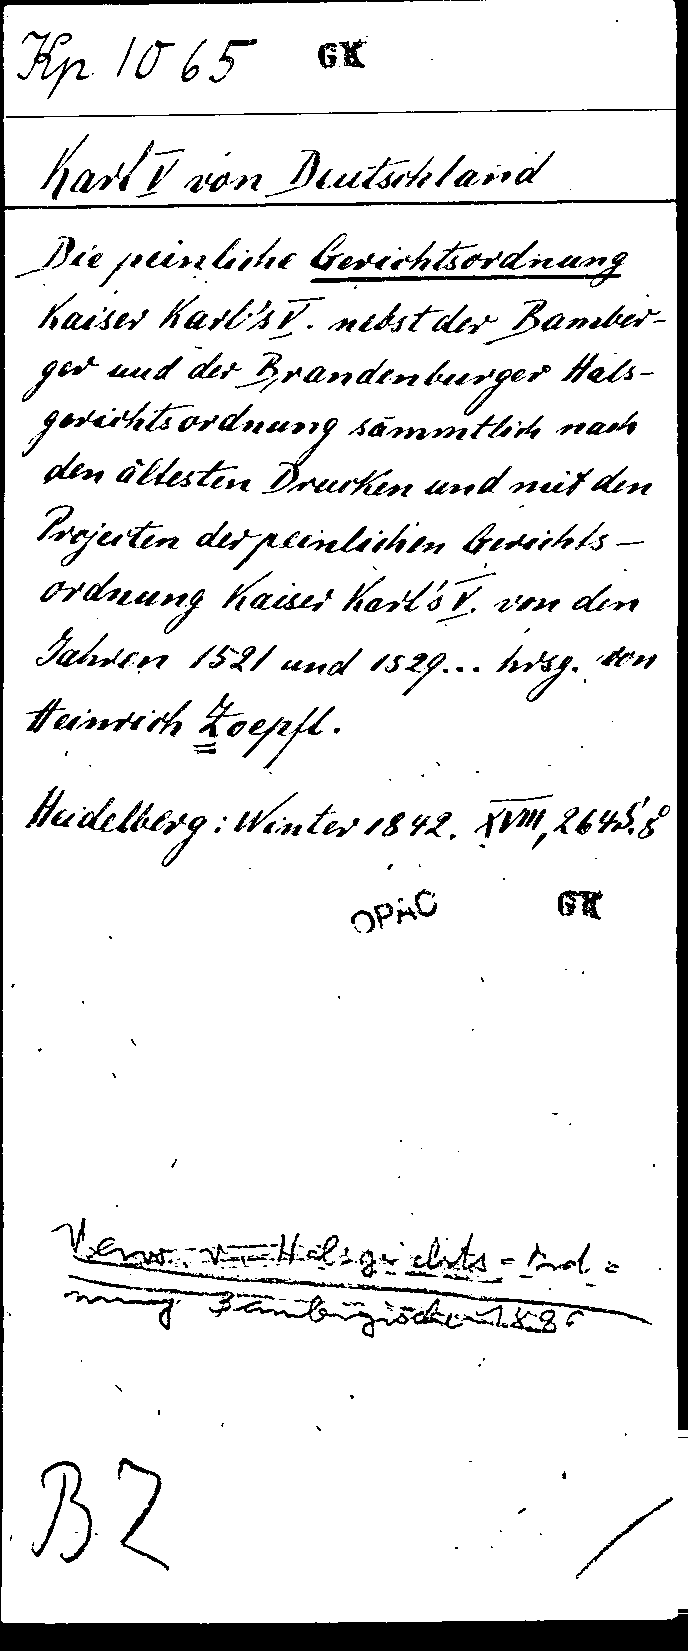 Kp 1065 GK
Karl V von Deutschland
Die peinliche Gerichtsordnung
Kaiser Karl's V. nebst der Bamber-
ger und der Brandenburger Hals-
gerichtsordnung sämmtlich nach
den ältesten Drucken und mit den
Projecten der peinlichen Gerichts-
ordnung Kaiser Karl's V. von den
Jahren 1521 und 1529... hrsg. von
Heinrich Zoepfl.
Heidelberg: Winter 1842. XVIII, 264 S. 8°
OPAC GK
Verw. v. Halsgerichts-Ord-
nung Bambergische
BZ